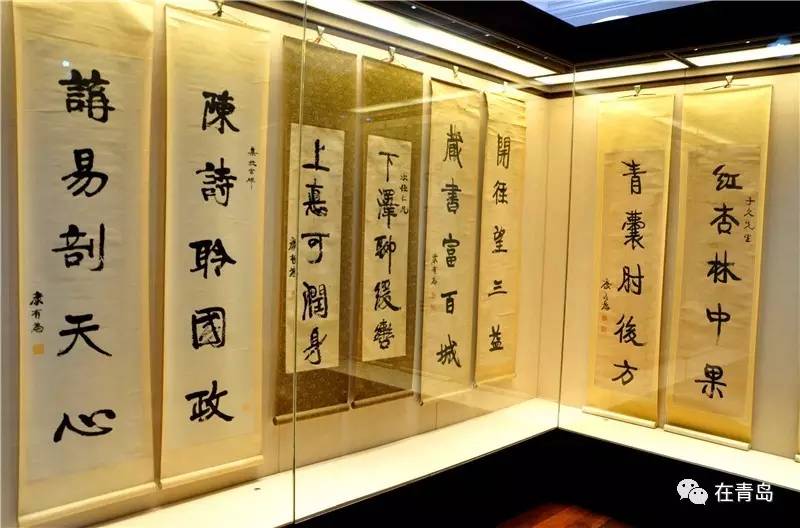 紅杏林中果
子久先生
青囊肘後方
康有為
開徑望三益
藏書富百城
康有為
下澤聊緩轡
仁兄
上悳可潤身
康有為
陳詩聆國政
講易剖天心
康有為
在青岛